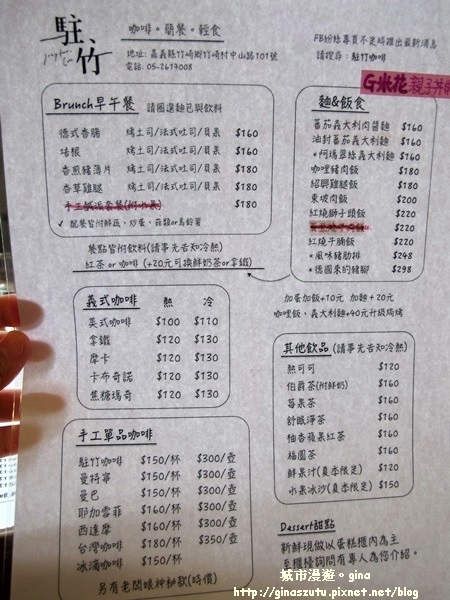 駐、竹
咖啡。簡餐。輕食
地址: 嘉義縣竹崎鄉竹崎村中山路101號
電話: 05-2617008
FB粉絲專頁不定時推出最新消息
請搜尋: 駐竹咖啡
G米花親子丼飯
Brunch早午餐 請圈選麵包與飲料
德式香腸 烤土司/法式吐司/貝果 $160
培根 烤土司/法式吐司/貝果 $160
香煎豬薄片 烤土司/法式吐司/貝果 $180
香草雞腿 烤土司/法式吐司/貝果 $180
$180
✓ 配餐皆附鮮蔬、炒蛋、菇類or馬鈴薯
餐點皆附飲料(請事先告知冷熱)
紅茶 or 咖啡 (+20元可換鮮奶茶or拿鐵)
麵&飯食
蕃茄義大利肉醬麵 $160
油封蕃茄義大利麵 $160
*柯瑪翠絲義大利麵 $160
咖哩豬肉飯 $180
紹興雞腿飯 $180
東坡肉飯 $200
紅燒獅子頭飯 $220
$220
紅燒牛腩飯 $220
*風味豬肋排 $248
*德國來的豬腳 $298
加蛋加飯+10元 加麵+20元
咖哩飯、義大利麵+40元升級焗烤
義式咖啡 熱 冷
美式咖啡 $100 $110
拿鐵 $120 $130
摩卡 $120 $130
卡布奇諾 $120 $130
焦糖瑪奇 $120 $130
其他飲品 (請事先告知冷熱)
熱可可 $120
伯爵茶(附鮮奶) $160
莓果茶 $160
舒眠淨茶 $160
柚香蘋果紅茶 $160
福圓茶 $160
鮮果汁(夏季限定) $120
水果冰沙(夏季限定) $150
手工單品咖啡
駐竹咖啡 $150/杯 $300/壺
曼特寧 $150/杯 $300/壺
曼巴 $150/杯 $300/壺
耶加雪菲 $160/杯 $300/壺
西達摩 $160/杯 $300/壺
台灣咖啡 $180/杯 $350/壺
冰滴咖啡 $150/杯
另有老闆娘神秘款(時價)
Dessert甜點
新鮮現做以蛋糕櫃內為主
至櫃檯詢問有專人為您介紹。
城市漫遊。gina
http://ginaszutu.pixnet.net/blog